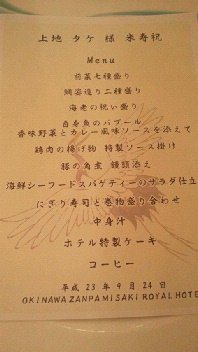 上地 タケ 様 米寿祝
Menu
前菜七種盛り
鯛姿造り二種盛り
海老の祝い盛り
白身魚のバプール
香味野菜とカレー風味ソースを添えて
鶏肉の揚げ物 特製ソース掛け
豚の角煮 饅頭添え
海鮮シーフードスパゲティーのサラダ仕立
にぎり寿司と巻物盛り合わせ
中身汁
ホテル特製ケーキ
コーヒー
平成 23 年 9 月 24 日
OKINAWA ZANPAMISAKI ROYAL HOTE